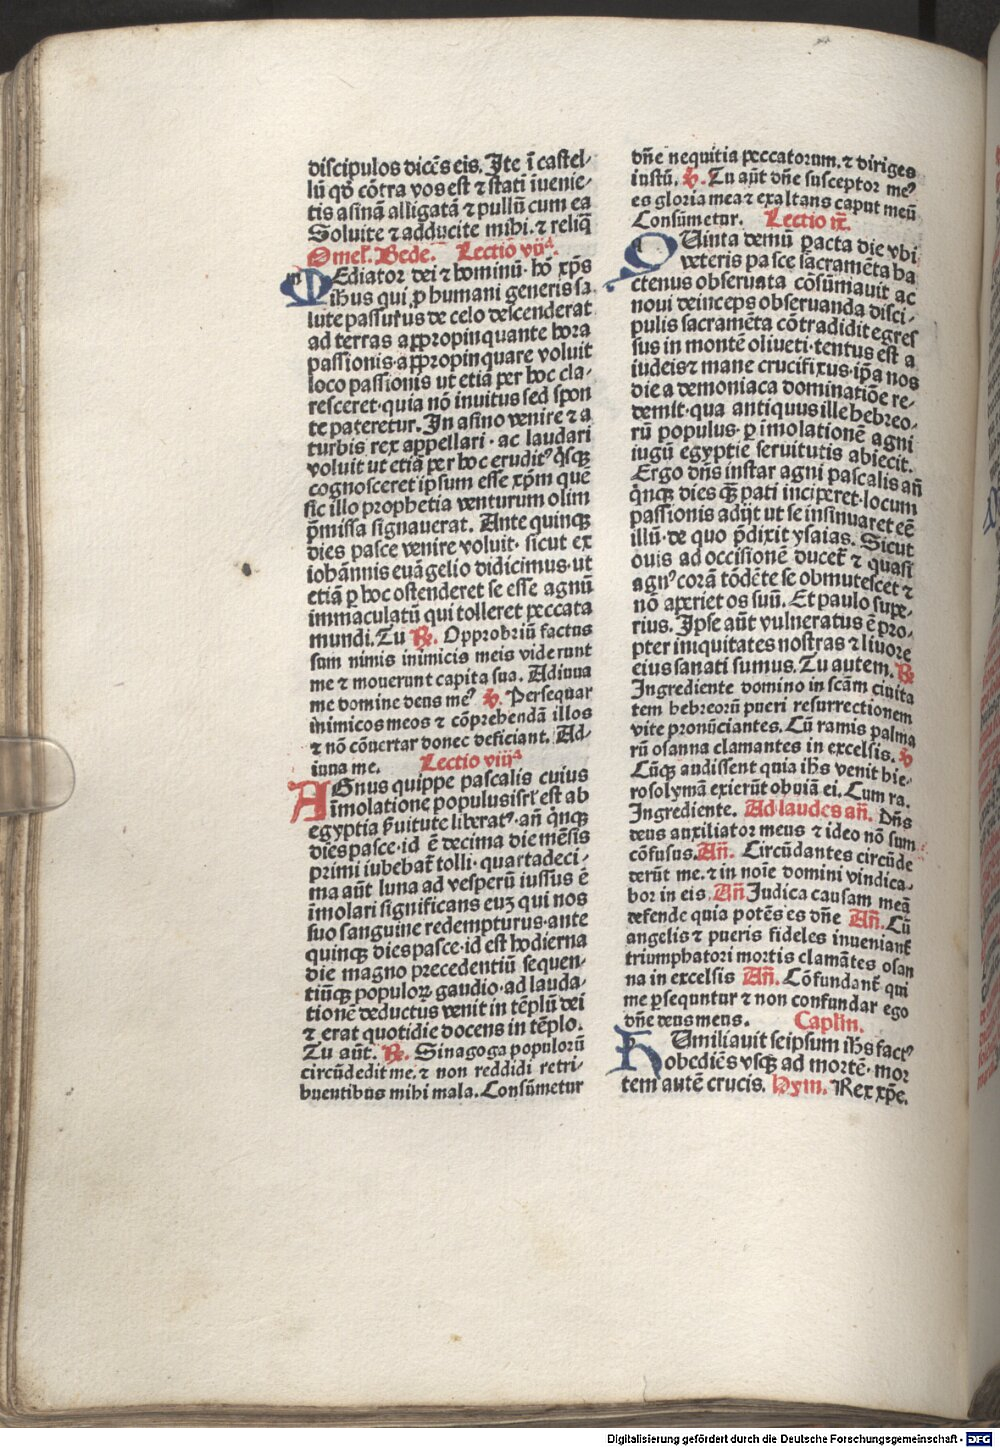 discipulos dicēs eis. Ite ī castel/
lū qd̓ cōtra vos est ⁊ stati īuenie/
tis asinā alligatā ⁊ pullū cum ea
Soluite ⁊ adducite mihi. ⁊ reliq̄
Omel'. Bede. Lectio vijª.
MEdiator dei ⁊ hominū· hō xp̄s
ih̄us qui ꝑ humani generis sa
lute passurus de celo descenderat
ad terras appropinquante hora
passionis· appropinquare voluit
loco passionis ut etiā per hoc cla/
resceret· quia nō inuitus sed spon
te pateretur. In asino venire ⁊ a
turbis rex appellari· ac laudari
voluit ut etiā per hoc eruditꝰ q̇sqꝫ
cognosceret ipsum esse xp̄m quē
sic illo prophetia venturum olim
p̄missa signauerat. Ante quinqꝫ
dies pasce venire voluit· sicut ex
iohānnis euāgelio didicimus· ut
etiā ꝑ hoc ostenderet se esse agnū
immaculatū qui tolleret peccata
mundi. Tu ℟. Opprobriū factus
sum nimis inimicis meis viderunt
me ⁊ mouerunt capita sua. Adiuua
me domine deus meꝰ ℣. Persequar
inimicos meos ⁊ cōprehendā illos
⁊ nō cōuertar donec deficiant. Ad/
iuua me. Lectio viijª
AGnus quippe pascalis cuius
īmolatione populus isrl' est ab
egyptia ẜuitute liberatꝰ· añ q̇nqꝫ
dies pasce· id ē decima die mēsis
primi iubebat̄ tolli· quartadeci/
ma aūt luna ad vesperū iussus ē
īmolari significans euꝫ qui nos
suo sanguine redempturus· ante
quinqꝫ dies pasce· id est hodierna
die magno precedentiū sequen/
tiūqꝫ populoꝝ gaudio· ad lauda/
tionē deductus venit in tēplū dei
⁊ erat quotidie docens in tēplo.
Tu aūt. ℟. Sinagoga populorū
circūdedit me. ⁊ non reddidi retri/
buentibus mihi mala. Consūmetur
dn̄e nequitia peccatorum. ⁊ diriges
iustū. ℣. Tu aūt dn̄e susceptor meꝰ
es gloria mea ⁊ exaltans caput meū
Consūmetur. Lectio ix.
QUinta demū ꝑacta die vbi
veteris pasce sacramēta ha
ctenus obseruata cōsūmauit ac
noui deinceps obseruanda disci/
pulis sacramēta cōtradidit egres
sus in montē oliueti· tentus est a
iudeis ⁊ mane crucifixus· ip̄a nos
die a demoniaca dominatiōe re/
demit· qua antiquus ille hebreo/
rū populus· ꝑ īmolationē agni
iugū egyptie seruitutis abiecit.
Ergo dn̄s instar agni pascalis añ
q̇nqꝫ dies q̄ꝫ pati inciperet· locum
passionis adijt ut se insinuaret eē
illū· de quo p̄dixit ysaias. Sicut
ouis ad occisionē ducet̄ ⁊ quasi
agnꝰ corā tōdēte se obmutescet ⁊
nō aperiet os suū. Et paulo supe/
rius. Ipse aūt vulneratus ē pro/
pter iniquitates nostras ⁊ liuore
eius sanati sumus. Tu autem. ℟
Ingrediente domino in scām ciuita
tem hebreorū pueri resurrectionem
vite pronūciantes. Cū ramis palma
rū osanna clamantes in excelsis. ℣
Cūqꝫ audissent quia ih̄s venit hie/
rosolymā exierūt obuiā ei. Cum ra.
Ingrediente. Ad laudes añ. Dn̄s
deus auxiliator meus ⁊ ideo nō sum
cōfusus. Añ. Circūdantes circūde
derūt me. ⁊ in noīe domini vindica/
bor in eis. Añ Iudica causam meā
defende quia potēs es dn̄e Añ. Cū
angelis ⁊ pueris fideles inueniant̄
triumphatori mortis clamātes osan
na in excelsis Añ. Cōfundant̄ qui
me ꝑsequntur ⁊ non confundar ego
dn̄e deus meus. Caplm̄.
HUmiliauit seipsum ih̄s factꝰ
obediēs vsqꝫ ad mortē· mor
tem autē crucis. Hym. Rex xp̄e.
Digitalisierung gefördert durch die Deutsche Forschungsgemeinschaft - DFG